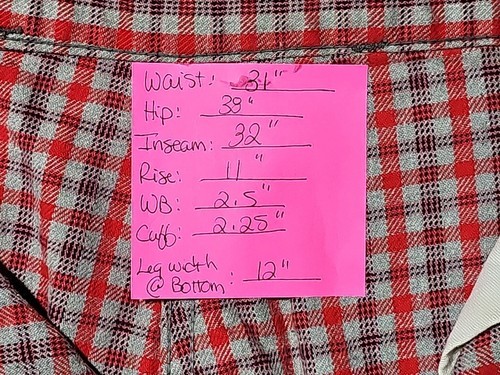 Waist: 31"
Hip: 39"
Inseam: 32"
Rise: 11"
WB: 2.5"
Cuff: 2.25"
Leg width
@ Bottom: 12"